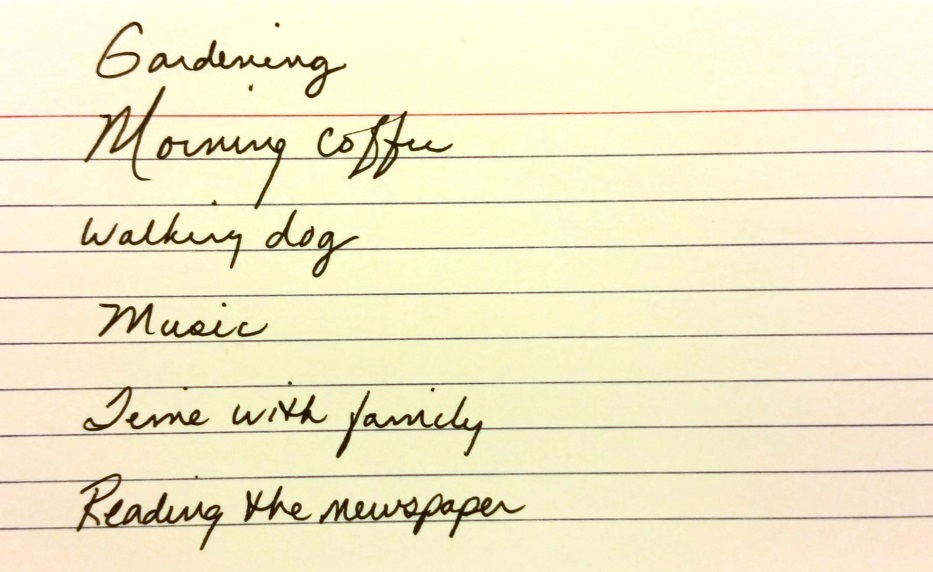 Gardening
Morning coffee
Walking dog
Music
Time with family
Reading the newspaper